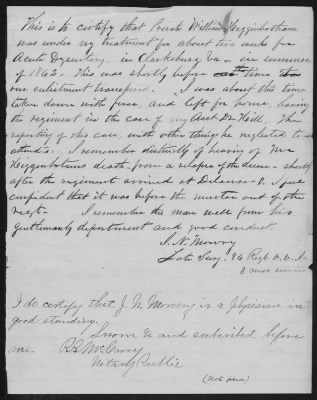 This is to certify that Private William Higginbotham
was under my treatment for about two weeks for
Acute Dysentery, in Clarksburg Va - in summer
of 1862. This was shortly before time
our enlistment transpired. I was about this time
taken down with fever, and left for home, leaving
the regiment in the care of my Asst Dr Hill, The
reporting of this case, with other things he neglected to
attend to. I remember distinctly of hearing of Mr
Higginbotham death - from a relapse of the disease - shortly
after the regiment arrived at Delaware O. I feel
confident that it was before the muster out of the
regt - I remember the man well from his
gentlemanly deportment and good conduct.
J. N. Mowry
Late Surg. 86 Regt O. V. I.
3 mos service
I do certify that J. N. Mowry is a physician in
good standing.
Sworn to and subscribed before
me.
Notary Public